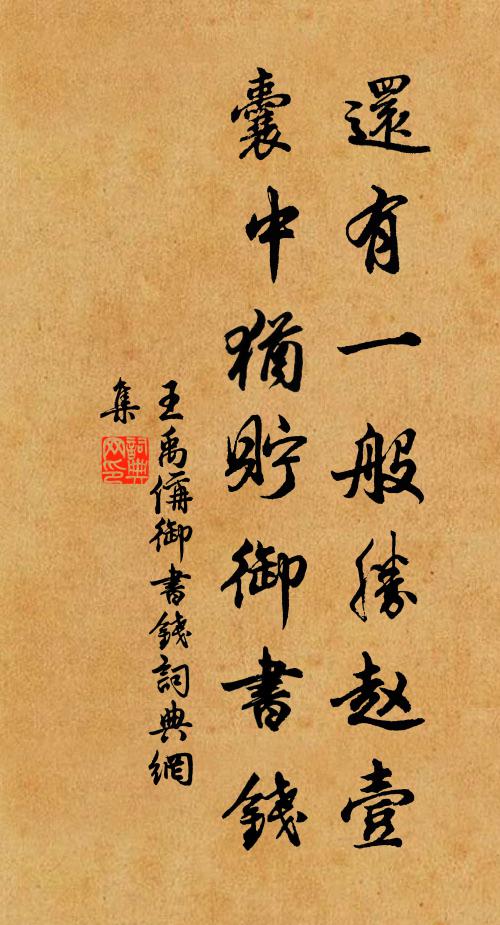 還有一般勝赵壹
囊中猶貯御書錢
王禹偁御書錢詞典網
集
詞典網印